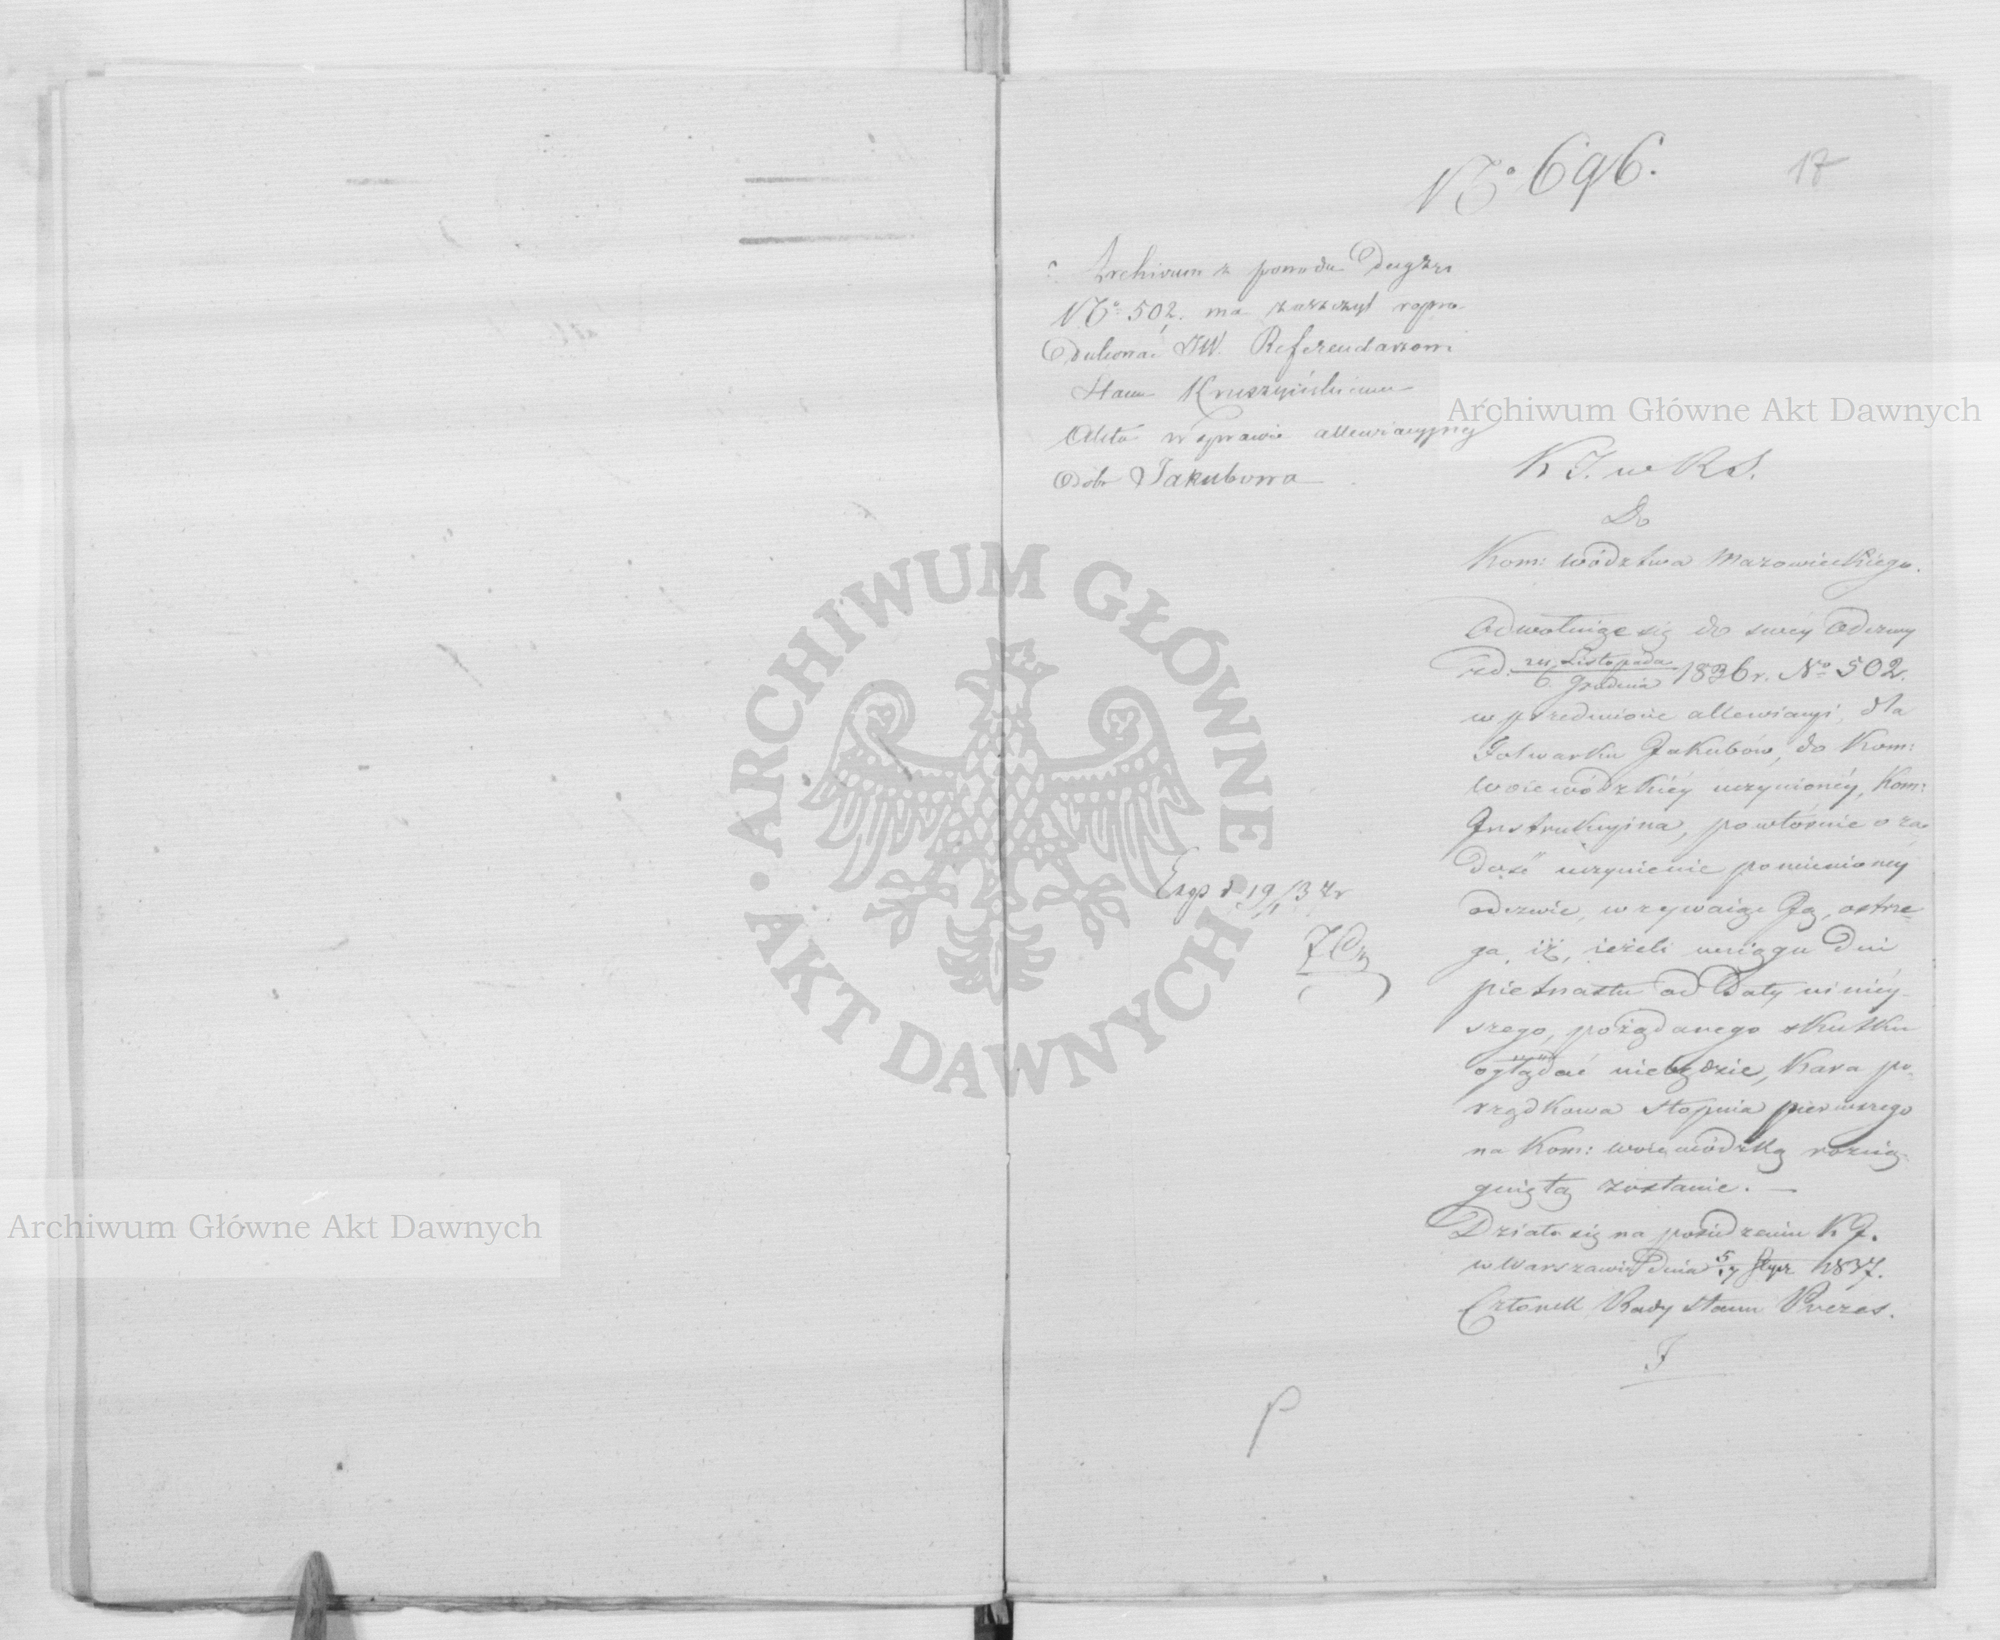 No 696.
17
Archivum z powodu Decyzyi
No 502. ma zaszczyt repro-
dukować JW. Referendarzowi
Stanu Kruszyńskiemu
Akta w sprawie allewiacyjnej
dóbr Jakubowa
K J. w R S.
Do
Kom: Wództwa Mazowieckiego.
Odwołuiąc się do swey Odezwy
z d. 24 Listopada / 6 Grudnia 1836 r. No 502.
w przedmiocie allewiacyi, dla
Folwarku Jakubów, do Kom:
Woiewódzkiéy uczynionéy, Kom:
Instrukcyina, powtórnie o za-
dość uczynienie pomienioney
odezwie, wzywaiąc Ją, ostrze-
ga, iż, ieżeli w ciągu dni
pietnastu od Daty niniéy-
szego, pożądanego skutku
oglądać niebędzie, Kara po-
rządkowa stopnia pierwszego
na Kom: woiewódzką rozcią-
gniętą zostanie. —
Działo się na posiedzeniu K J.
w Warszawie dnia 5/17 Stycz 1837.
Członek Rady Stanu Prezes.
J
Exp d 19/1 37 r
P
ARCHIWUM GŁÓWNE · AKT DAWNYCH ·
Archiwum Główne Akt Dawnych
Archiwum Główne Akt Dawnych